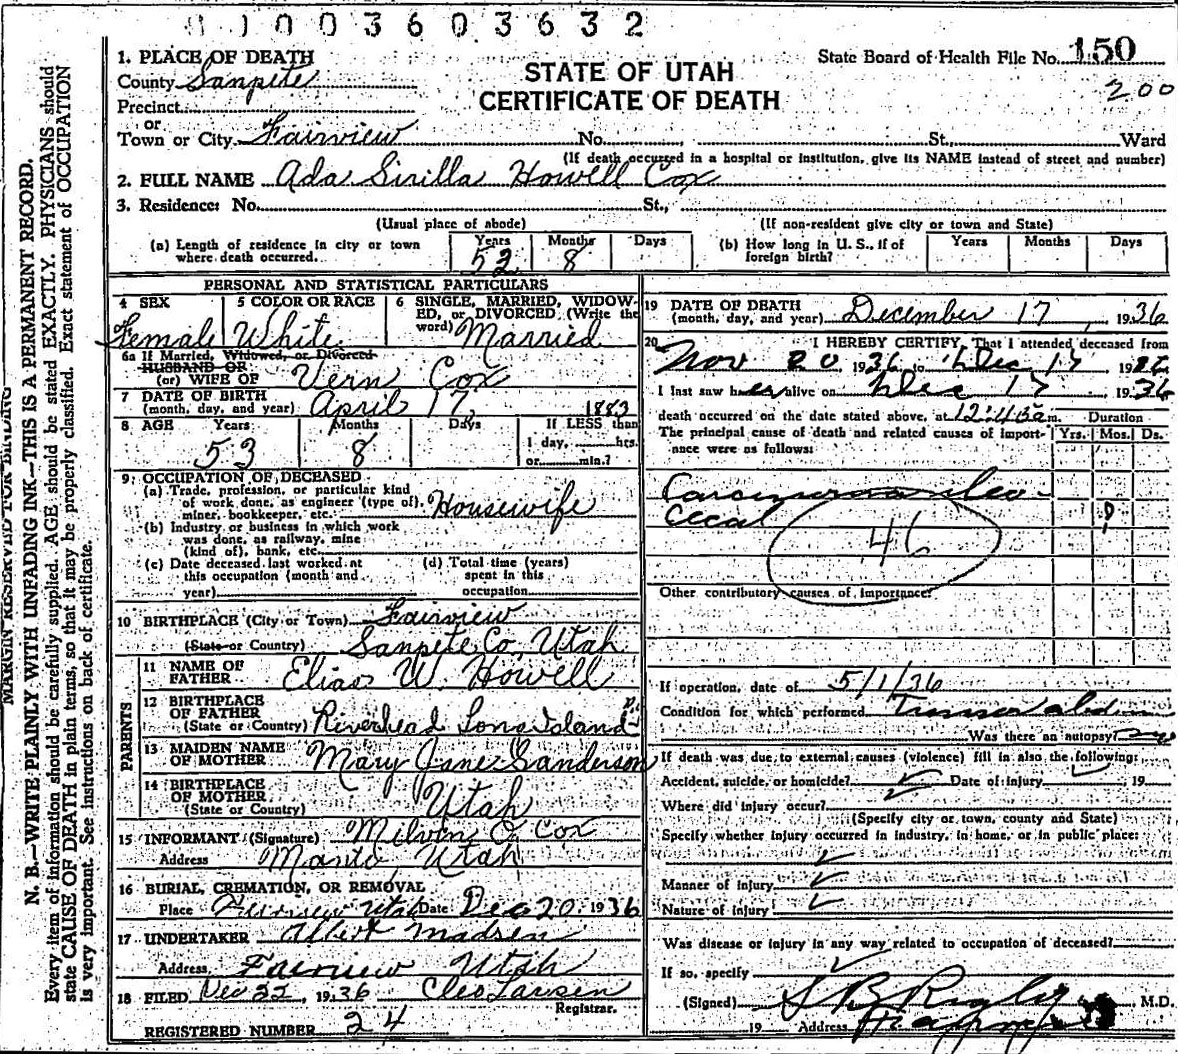 0 1 0 0 3 6 0 3 6 3 2
State Board of Health File No. 150
200
STATE OF UTAH
CERTIFICATE OF DEATH
1. PLACE OF DEATH
County Sanpete
Precinct
or
Town or City Fairview No. , St., Ward
(If death occurred in a hospital or institution, give its NAME instead of street and number)
2. FULL NAME Ada Sirilla Howell Cox
3. Residence: No. St.,
(Usual place of abode) (If non-resident give city or town and State)
(a) Length of residence in city or town where death occurred. Years 53 Months 8 Days
(b) How long in U. S., if of foreign birth? Years Months Days
PERSONAL AND STATISTICAL PARTICULARS
4 SEX Female
5 COLOR OR RACE White
6 SINGLE, MARRIED, WIDOWED, or DIVORCED (Write the word) Married
6a If Married, Widowed, or Divorced
HUSBAND OR
(or) WIFE OF Vern Cox
7 DATE OF BIRTH
(month, day, and year) April 17, 1883
8 AGE Years 53 Months 8 Days If LESS than 1 day, hrs. or min.?
9. OCCUPATION OF DECEASED
(a) Trade, profession, or particular kind of work done, as engineer (type of), miner, bookkeeper, etc. Housewife
(b) Industry or business in which work was done, as railway, mine (kind of), bank, etc.
(c) Date deceased last worked at this occupation (month and year)
(d) Total time (years) spent in this occupation
10 BIRTHPLACE (City or Town) Fairview
(State or Country) Sanpete Co, Utah
PARENTS
11 NAME OF FATHER Elias W. Howell
12 BIRTHPLACE OF FATHER
(State or Country) Riverhead Long Island
13 MAIDEN NAME OF MOTHER Mary Jane Sanderson
14 BIRTHPLACE OF MOTHER
(State or Country) Utah
15 INFORMANT (Signature) Milven O. Cox
Address Manti Utah
16 BURIAL, CREMATION, OR REMOVAL
Place Fairview Utah Date Dec 20, 1936
17 UNDERTAKER Albert Madsen
Address Fairview Utah
18 FILED Dec 22, 1936 Cleo Larsen
Registrar.
REGISTERED NUMBER 24
19 DATE OF DEATH
(month, day, and year) December 17, 1936
20 I HEREBY CERTIFY, That I attended deceased from
Nov 20 1936 to Dec 17 1936
I last saw her alive on Dec 17 1936
death occurred on the date stated above, at 12:45 a m. Duration
The principal cause of death and related causes of importance were as follows: Yrs. Mos. Ds.
Carcinoma Ileo-
Cecal ?
46
Other contributory causes of importance:
If operation, date of 5/1/36
Condition for which performed Tumor
Was there an autopsy? no
If death was due to external causes (violence) fill in also the following:
Accident, suicide, or homicide? Date of injury 19
Where did injury occur?
(Specify city or town, county and State)
Specify whether injury occurred in industry, in home, or in public place:
Manner of injury
Nature of injury
Was disease or injury in any way related to occupation of deceased?
If so, specify
(Signed) Rigby M.D.
19 Address
MARGIN RESERVED FOR BINDING
N. B.—WRITE PLAINLY WITH UNFADING INK—THIS IS A PERMANENT RECORD.
Every item of information should be carefully supplied. AGE should be stated EXACTLY. PHYSICIANS should
state CAUSE OF DEATH in plain terms, so that it may be properly classified. Exact statement of OCCUPATION
is very important. See instructions on back of certificate.